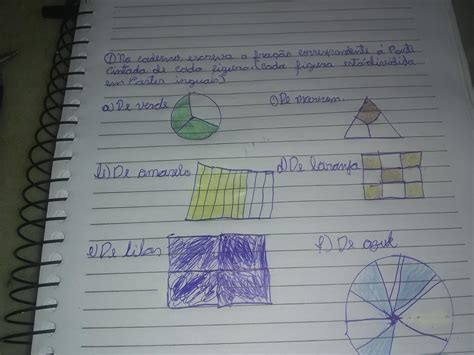 1) No caderno escreva a fração correspondente à Parte
Cintada de cada figura (cada figura está dividida
em Partes inguais)
a) De verde
c) De marrom
b) De amarelo
d) De laranja
e) De lilas
f) De azul